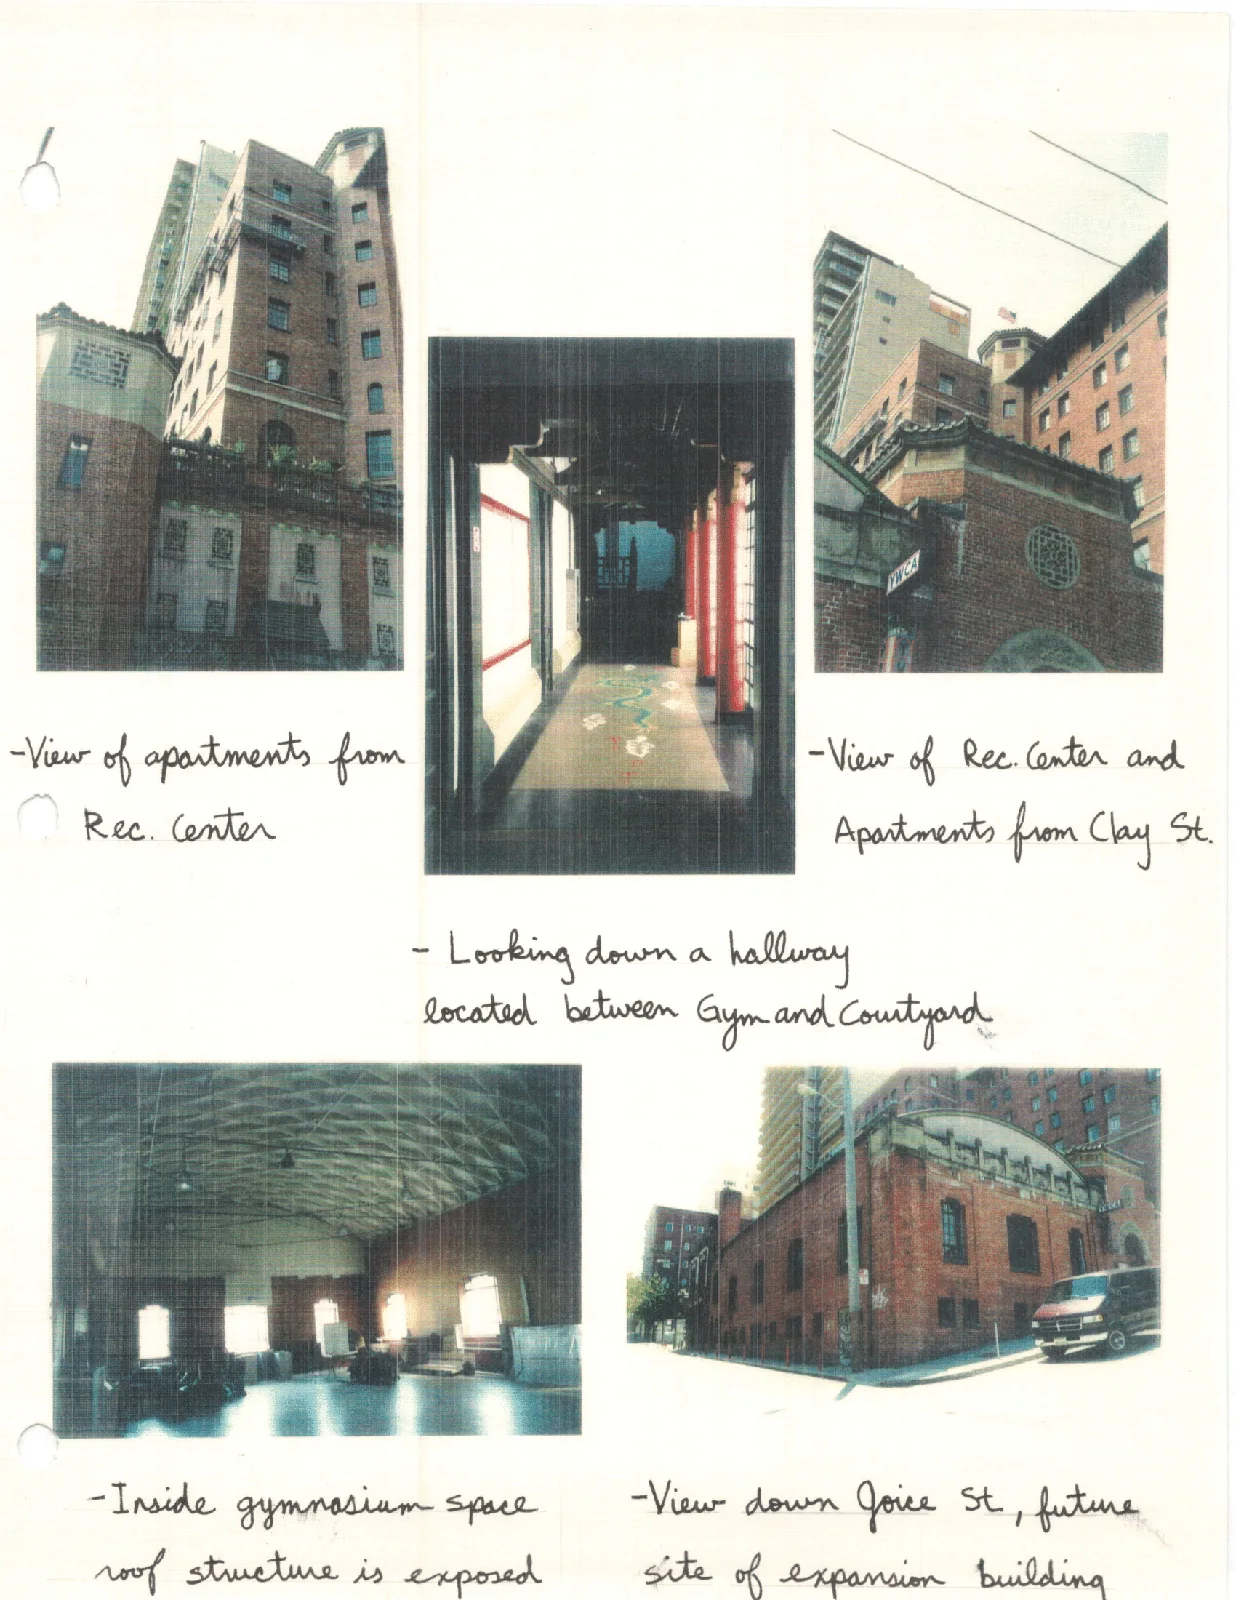 YWCA
-View of apartments from
Rec. Center
-View of Rec. Center and
Apartments from Clay St.
- Looking down a hallway
located between Gym and Courtyard
YWCA
-Inside gymnasium space
roof structure is exposed
-View down Joice St, future
site of expansion building